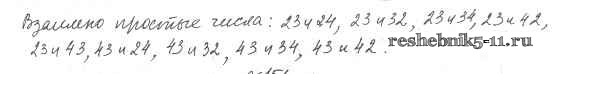 Взаимно простые числа: 23 и 24, 23 и 32, 23 и 34, 23 и 42,
23 и 43, 43 и 24, 43 и 32, 43 и 34, 43 и 42.
reshebnik5-11.ru